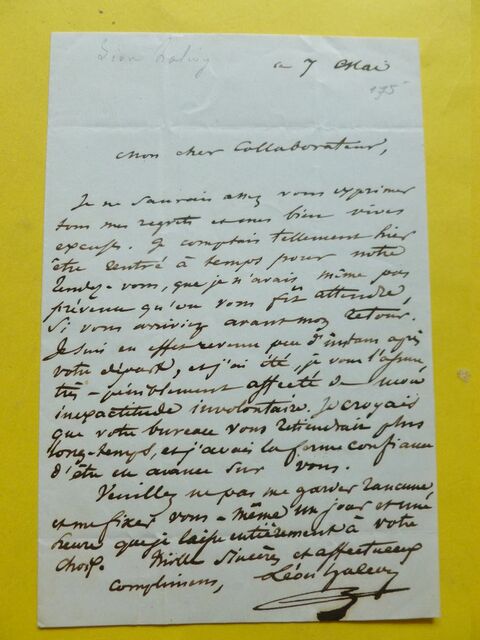 Léon Halévy
ce 7 Mai
175
Mon cher Collaborateur,
Je ne saurais assez vous exprimer
tous mes regrets et mes bien vives
excuses. Je comptais tellement hier
être rentré à temps pour notre
rendez-vous, que je n'avais même pas
prévenu qu'on vous fît attendre,
si vous arriviez avant mon retour.
Je suis en effet revenu peu d'instans après
votre départ, et j'ai été, je vous l'assure
très-péniblement affecté de mon
inexactitude involontaire. Je croyais
que votre bureau vous retiendrait plus
long-temps, et j'avais la ferme confiance
d'être en avance sur vous.
Veuillez ne pas me garder rancune
et me fixer vous-même un jour et une
heure que je laisse entièrement à votre
choix. Mille sincères et affectueux
complimens,
Léon Halévy